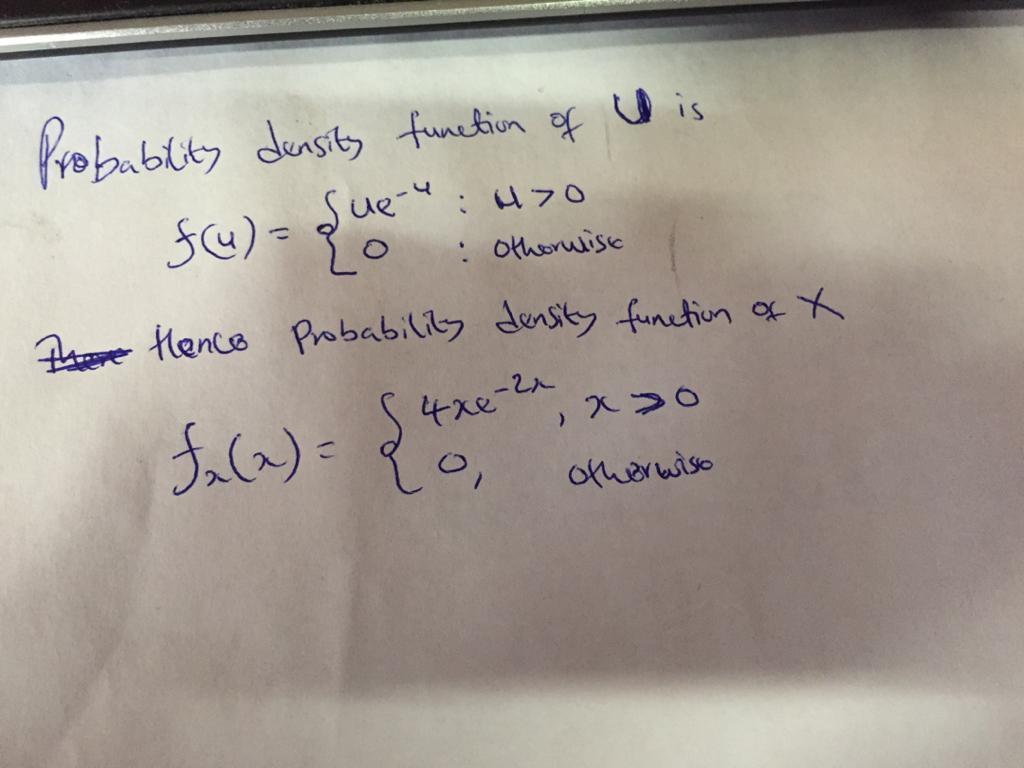 Probability density function of U is
f(u) = { ue^-u : u > 0
0 : otherwise
Hence Probability density function of X
fx(x) = { 4xe^-2x, x ≥ 0
0, otherwise